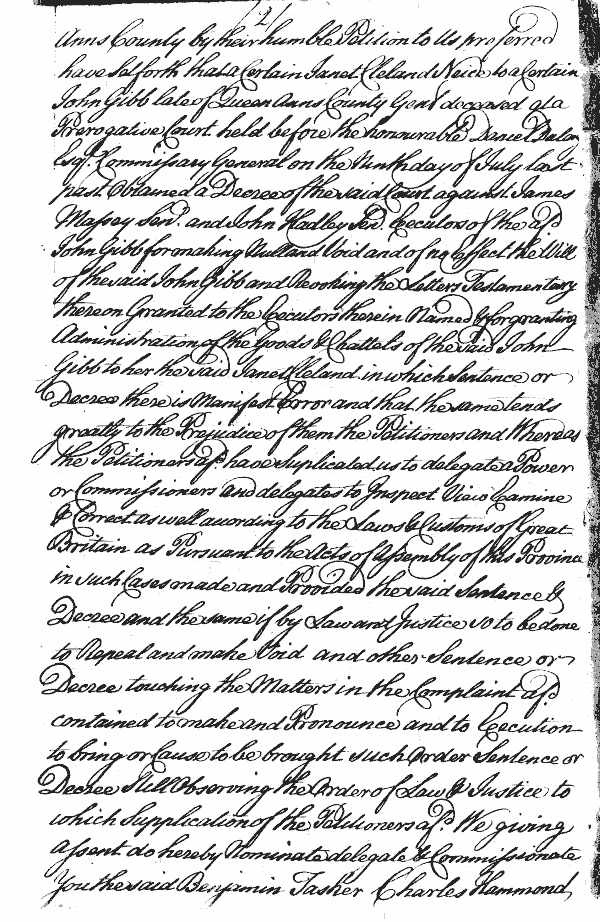 2/
Anns County by their humble Petition to Us preferred
have Setforth that a Certain Janet Cleland Neice to a Certain
John Gibb late of Queen Anns County Gent deceased at a
Prerogative Court held before the honourable Daniel Dulany
Esqr. Commissary General on the Ninth day of July last
past Obtained a Decree of the said Court against James
Massey Senr. and John Hadley Senr. Executors of the afsd
John Gibb for making Null and Void and of no Effect the Will
of the said John Gibb and Revoking the Letters Testamentary
thereon Granted to the Executors therein Named & for granting
Administration of the Goods & Chattels of the said John
Gibb to her the said Janet Cleland in which Sentence or
Decree there is Manifest Error and that the same tends
greatly to the Prejudice of them the Petitioners and Whereas
the Petitioners afsd have Suplicated us to delegate a Power
or Commissioners and delegates to Inspect View Examine
& Correct as well according to the Laws & Customs of Great
Britain as Pursuant to the Acts of Assembly of this Province
in such Cases made and Provided the said Sentence &
Decree and the same if by Law and Justice so to be done
to Repeal and make Void and other Sentence or
Decree touching the Matters in the Complaint afsd
contained to make and Pronounce and to Execution
to bring or Cause to be brought such Order Sentence or
Decree Still Observing the Order of Law & Justice to
which Supplication of the Petitioners afsd. We giving
assent do hereby Nominate delegate & Commissionate
You the said Benjamin Tasker Charles Hammond